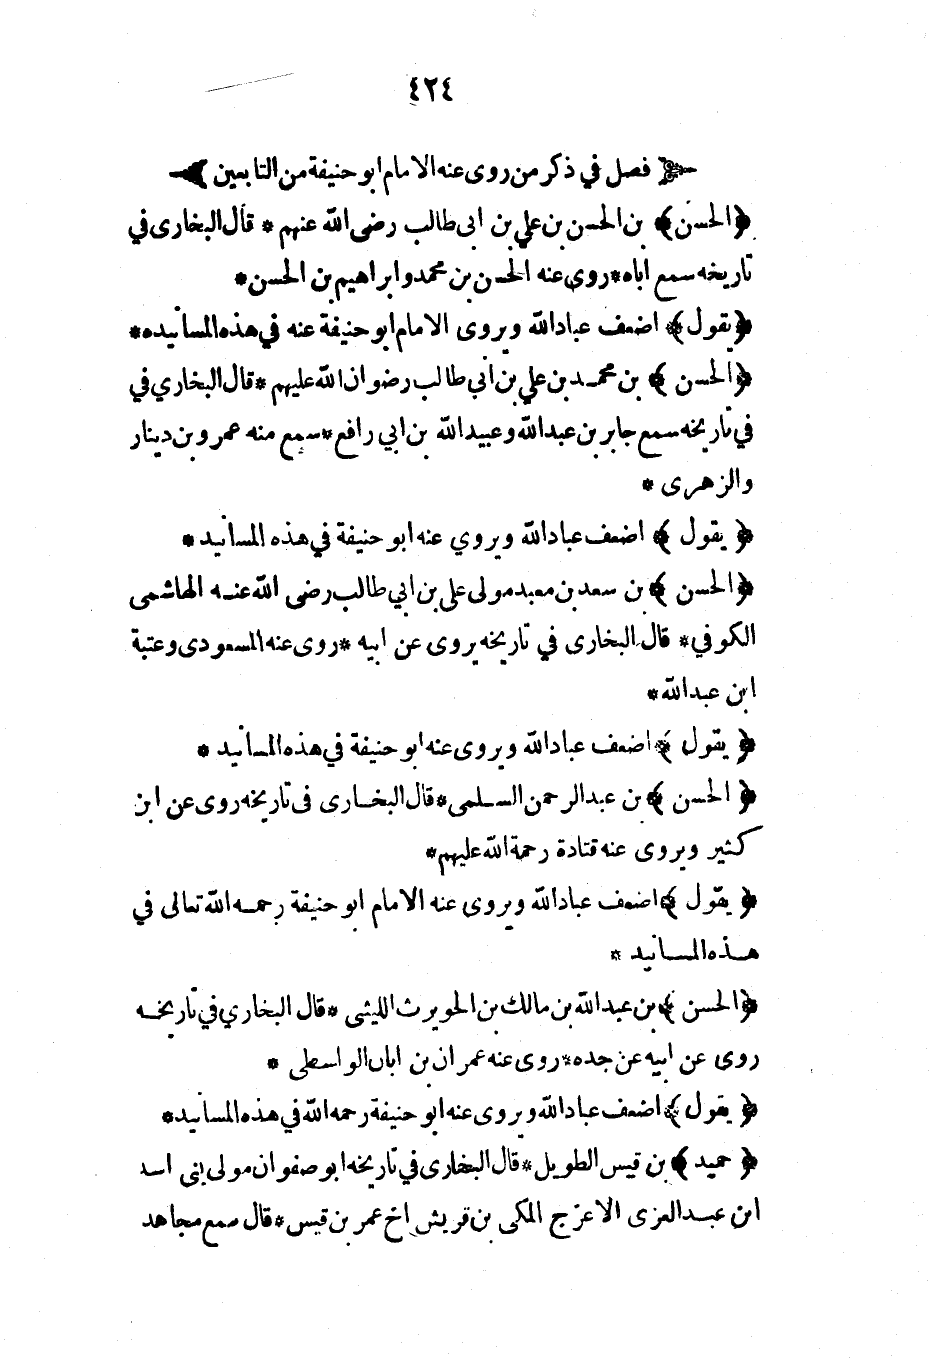 ٤٢٤
فصل في ذكر من روى عنه الامام ابو حنيفة من التابعين
﴿الحسن﴾ بن الحسن بن علي بن ابى طالب رضى الله عنهم * قال البخارى في
تاريخه سمع اباه * روى عنه الحسن بن محمد وابراهيم بن الحسن *
﴿يقول﴾ اضعف عباد الله ويروى الامام ابو حنيفة عنه في هذه المسانيده *
﴿الحسن﴾ بن محمد بن علي بن أبي طالب رضوان الله عليهم * قال البخاري في
في تاريخه سمع جابر بن عبد الله وعبيد الله بن ابي رافع * سمع منه عمرو بن دينار
والزهرى *
﴿يقول﴾ اضعف عباد الله ويروي عنه ابو حنيفة في هذه المسانيد *
﴿الحسن﴾ بن سعد بن معبد مولى على بن ابي طالب رضى الله عنه الهاشمى
الكوفي * قال البخارى في تاريخه يروى عن ابيه * روى عنه المسعودى وعتبة
ابن عبد الله *
﴿يقول﴾ اضعف عباد الله ويروى عنه ابو حنيفة في هذه المسانيد *
﴿الحسن﴾ بن عبد الرحمن السلمى * قال البخارى فى تاريخه روى عن ابن
كثير ويروى عنه قتادة رحمة الله عليهم *
﴿يقول﴾ اضعف عباد الله ويروى عنه الامام ابو حنيفة رحمه الله تعالى في
هذه المسانيد *
﴿الحسن﴾ بن عبد الله بن مالك بن الحويرث الليثى * قال البخاري في تاريخه
روى عن ابيه عن جده * روى عنه عمران بن ابان الواسطى *
﴿يقول﴾ اضعف عباد الله ويروى عنه ابو حنيفة رحمه الله في هذه المسانيد *
﴿حميد﴾ بن قيس الطويل * قال البخارى في تاريخه ابو صفوان مولى بنى اسد
ابن عبد العزى الاعرج المكى بن قريش اخ عمر بن قيس * قال سمع مجاهد